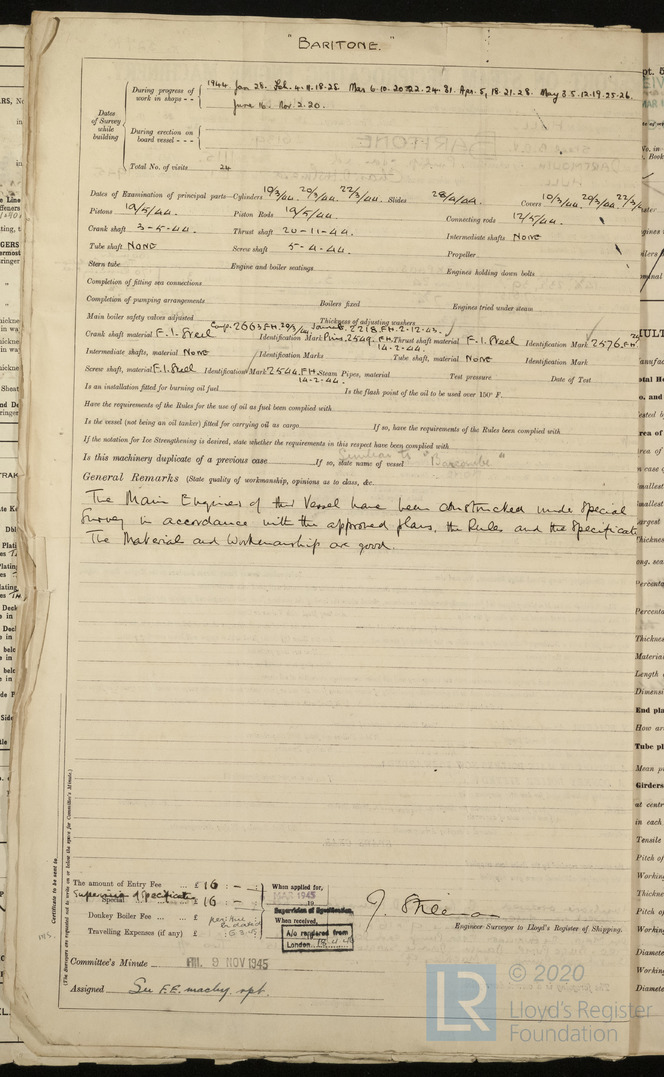 "BARITONE."
Dates of Survey while building
During progress of work in shops - - 1944 Jan 28. Feb. 4.11.18.25 Mar 6.10.20.22.24.31. Apr. 5, 18.21.28. May 3.5.12.19.25.26.
June 16. Nov. 2.20.
During erection on board vessel - - -
Total No. of visits 24
Dates of Examination of principal parts—Cylinders 10/3/44. 20/3/44. 22/3/44. Slides 28/4/44. Covers 10/3/44. 20/3/44. 22/3/
Pistons 19/5/44. Piston Rods 19/5/44. Connecting rods 12/5/44.
Crank shaft 3-5-44. Thrust shaft 20-11-44. Intermediate shafts NONE
Tube shaft NONE Screw shaft 5-4-44. Propeller
Stern tube Engine and boiler seatings Engines holding down bolts
Completion of fitting sea connections
Completion of pumping arrangements Boilers fixed Engines tried under steam
Main boiler safety valves adjusted Thickness of adjusting washers
Crank shaft material F.I. Steel Identification Mark 2663 F.H. 2218 F.H. 2-12-43. Pins 2549. F.H. 14-2-44. Thrust shaft material F.I. Steel Identification Mark 2576. F.H.
Intermediate shafts, material NONE Identification Marks Tube shaft, material NONE Identification Mark
Screw shaft, material F.I. Steel Identification Mark 2544. F.H. 14-2-44. Steam Pipes, material Test pressure Date of Test
Is an installation fitted for burning oil fuel Is the flash point of the oil to be used over 150° F.
Have the requirements of the Rules for the use of oil as fuel been complied with
Is the vessel (not being an oil tanker) fitted for carrying oil as cargo If so, have the requirements of the Rules been complied with
If the notation for Ice Strengthening is desired, state whether the requirements in this respect have been complied with
Is this machinery duplicate of a previous case If so, state name of vessel Similar to "Barcombe"
General Remarks (State quality of workmanship, opinions as to class, &c.
The Main Engines of this Vessel have been constructed under Special
Survey in accordance with the approved plans, the Rules and the Specificati
The Materials and Workmanship are good.
Certificate to be sent to
(The Surveyors are requested not to write on or below the space for Committee's Minute.)
The amount of Entry Fee ... £ 16 : - :
Supervision of Specification
Special ... £ 16 : - :
Donkey Boiler Fee ... £
Travelling Expenses (if any) £
When applied for,
MAR 1945
19
Supervision of Specification.
When received,
A/c rendered from
London
Engineer Surveyor to Lloyd's Register of Shipping.
Committee's Minute FRI. 9 NOV 1945
Assigned See F.E. machy. rpt.
© 2020
LR
Lloyd's Register
Foundation